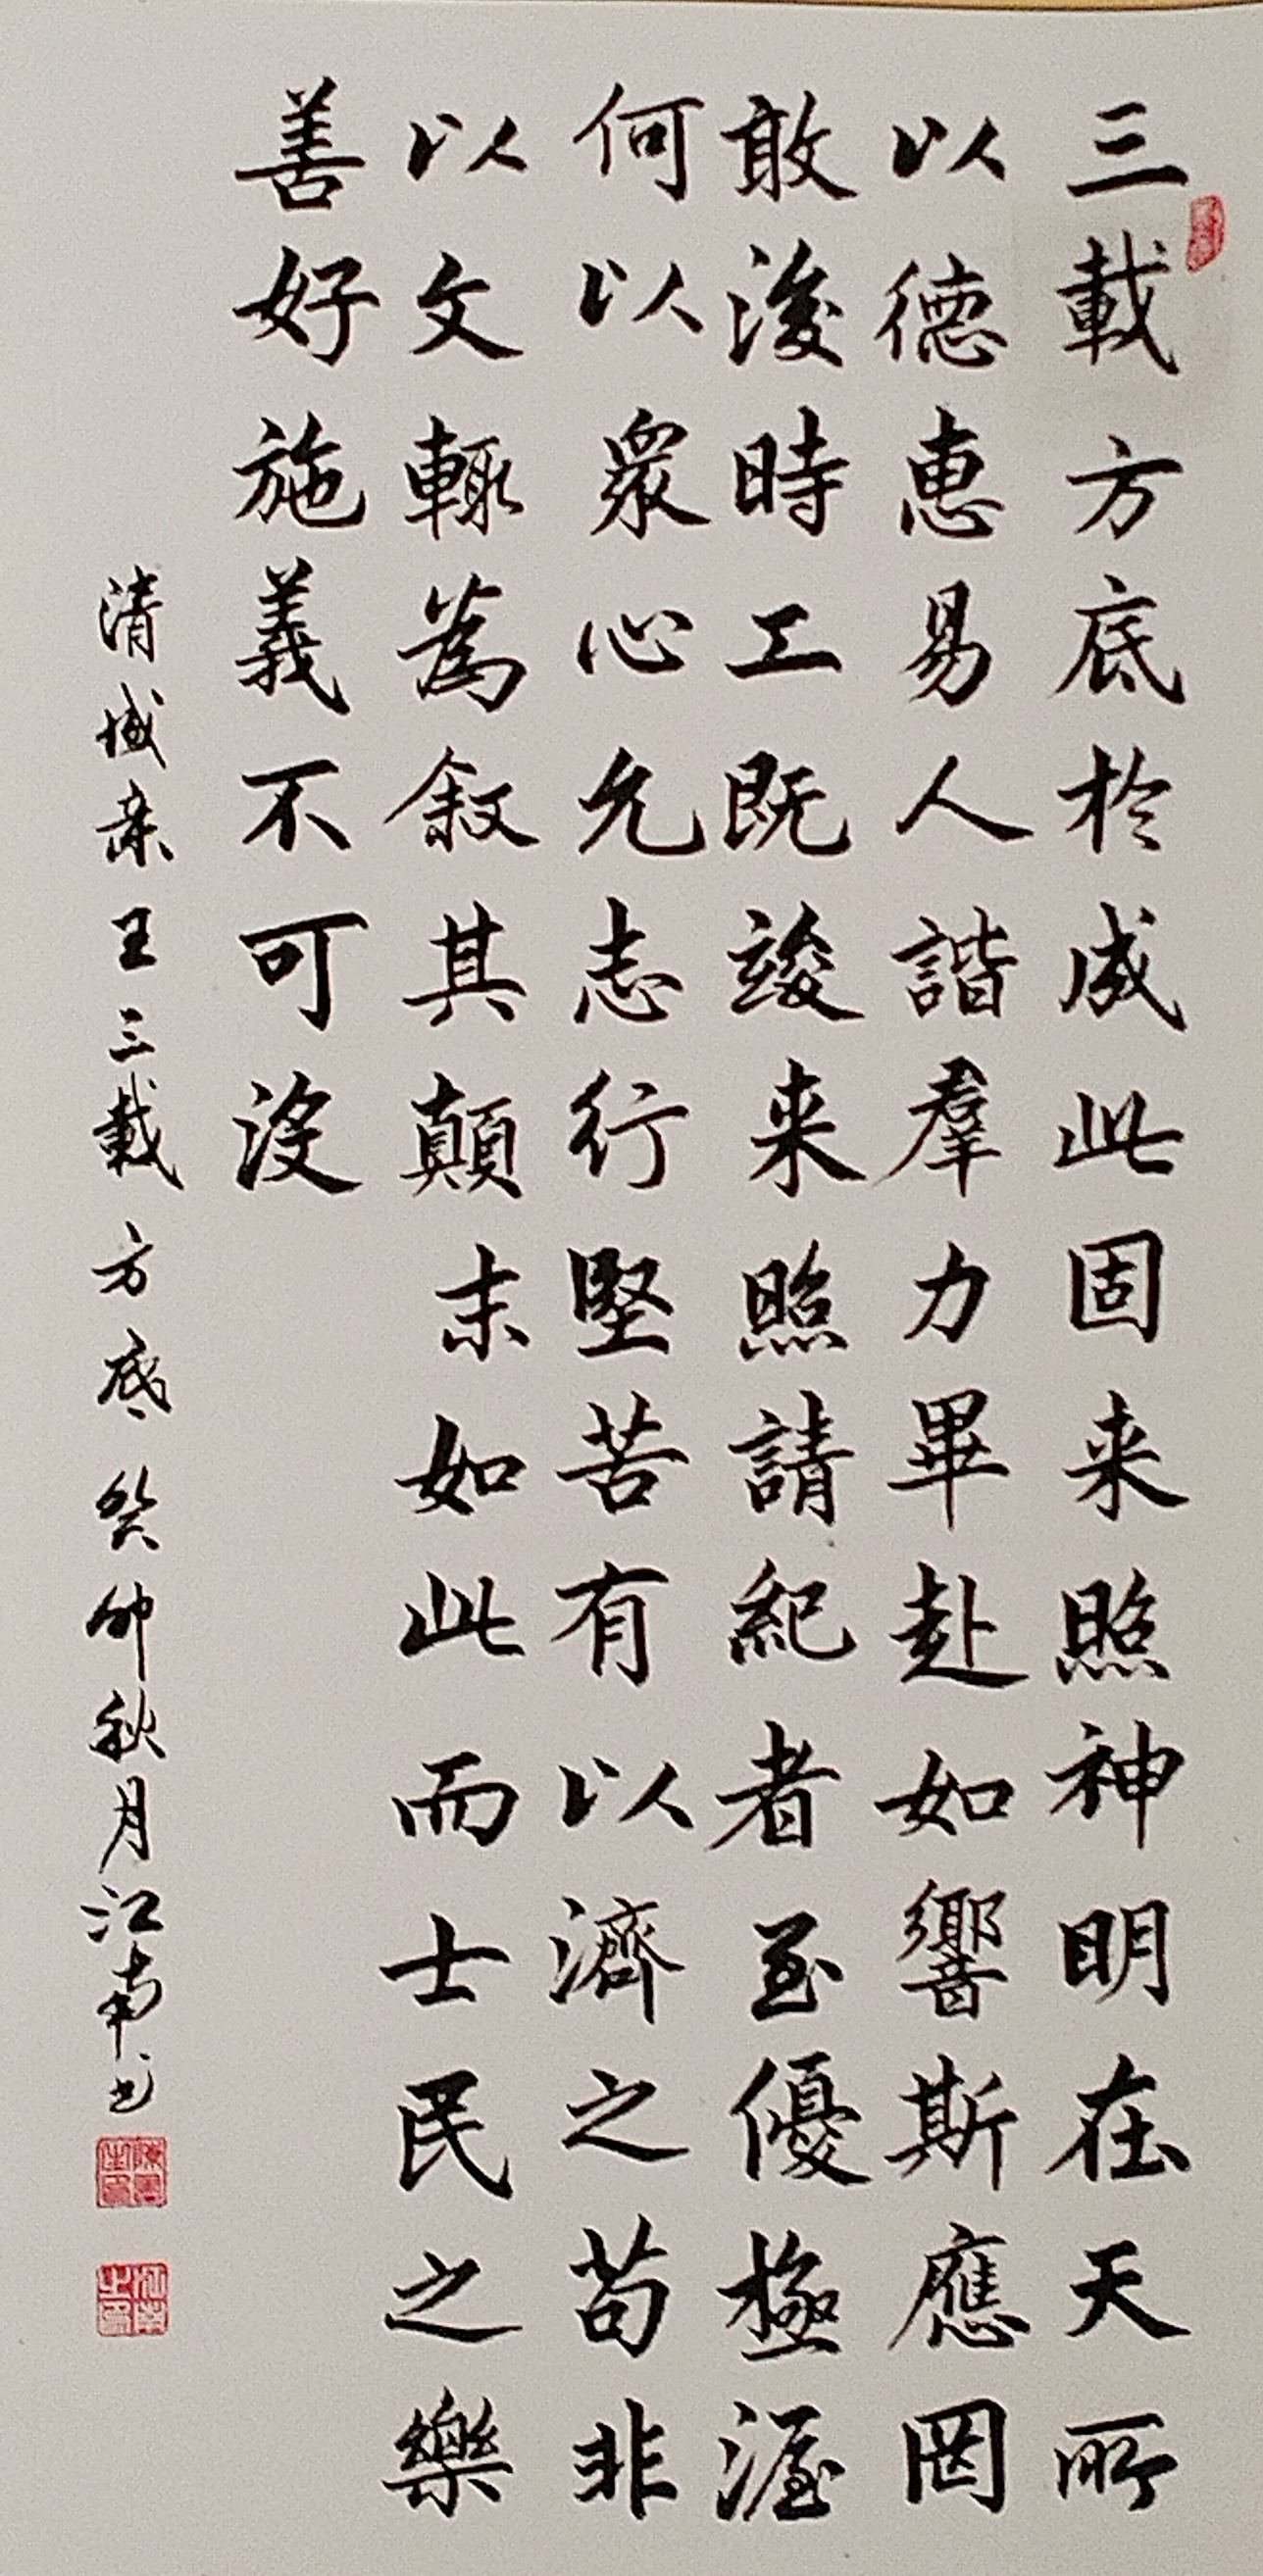 三載方底於成此固来照神明在天所
以德惠易人諧羣力畢赴如響斯應罔
敢後時工既竣来照請紀者至優極渥
何以衆心允志行堅苦有以濟之苟非
以文輒為叙其顛末如此而士民之樂
善好施義不可沒
清成亲王三載方底癸卯秋月江南书